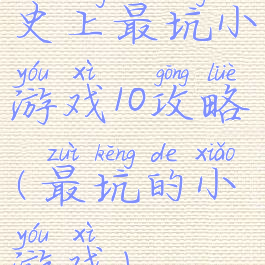 史上最坑小
yóu xì gōng lüè
游戏10攻略
zuì kēng de xiǎo
(最坑的小
yóu xì
游戏)